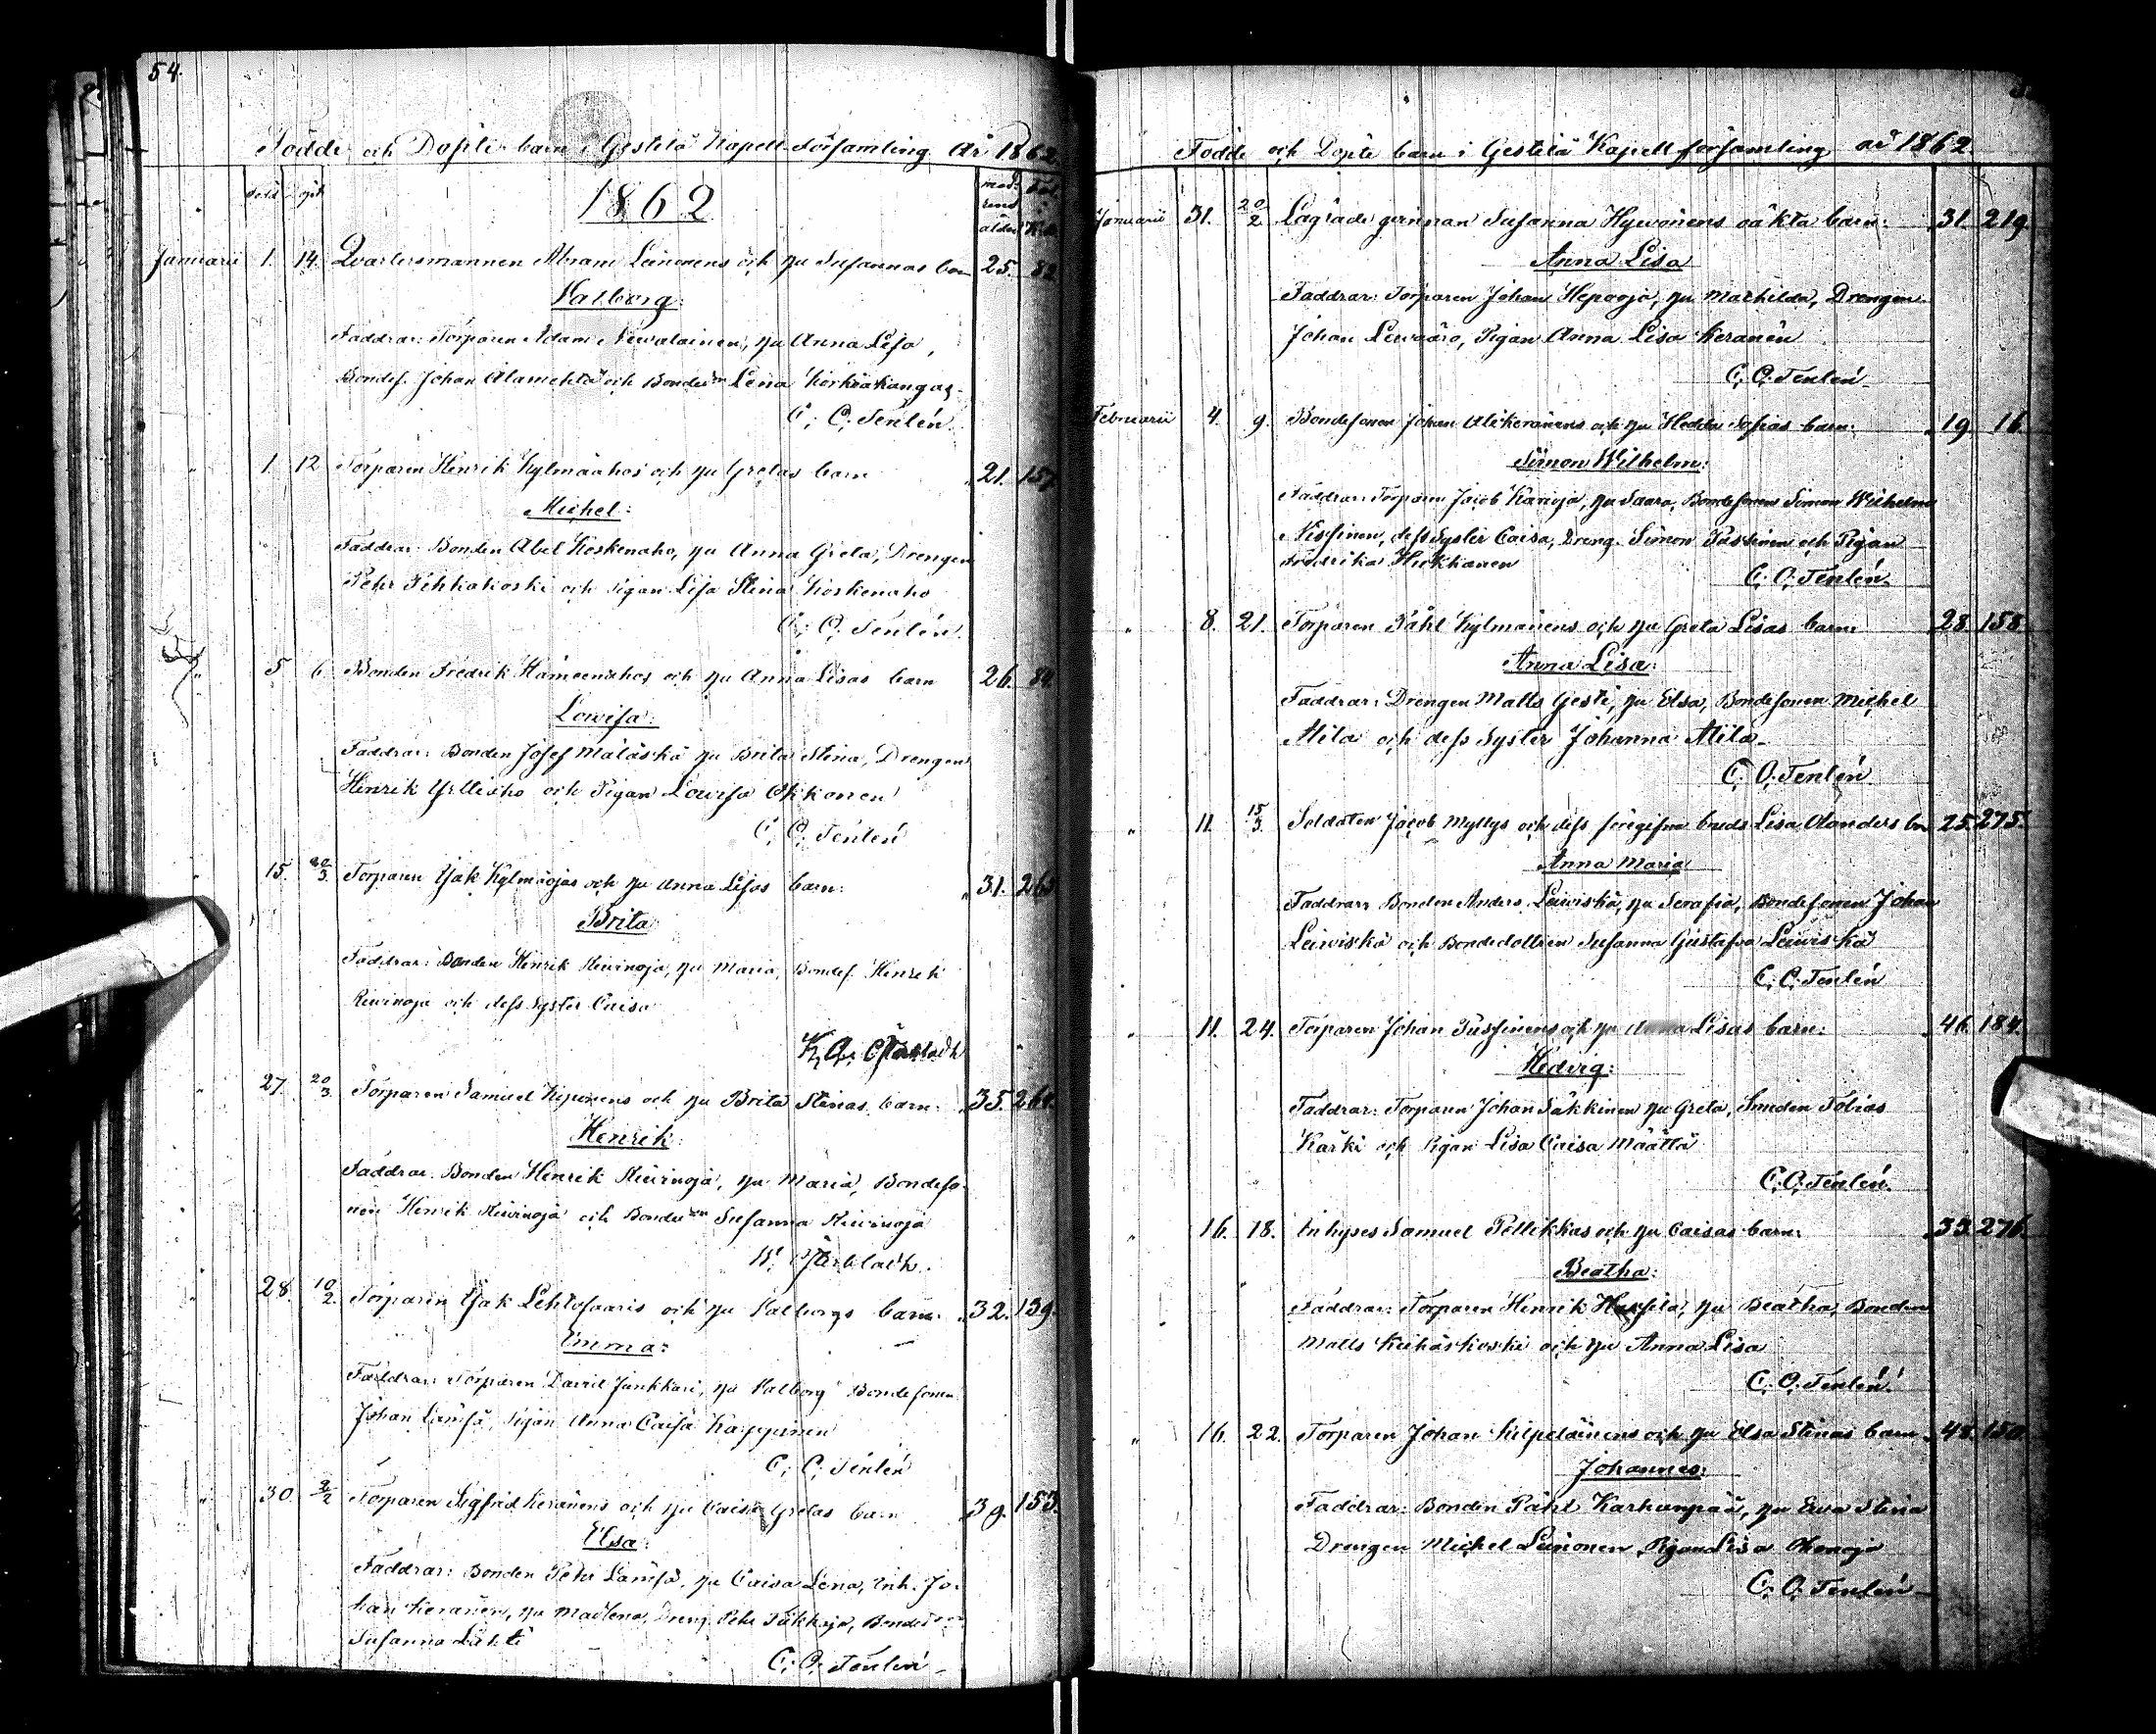 54.
Födde och Döpte barn i Gestilä Kapell Församling År 1862
född döpt
1862
Januarii 1. 14. Qvartersmannen Abram Leinonens och hu Susannas barn 25. 82.
Valborg:
Faddrar: Torparen Adam Niewalainen, hu Anna Lisa,
Bondes. Johan Alamehtä och Bonded:n Lena Korkiakangas.
C. O. Tenlén.
1. 12 Torparen Henrik Kylmäahos och hu Gretas barn 21. 157.
Michel:
Faddrar: Bonden Abel Koskenaho, hu Anna Greta, Drengen
Pehr Pihkakoski och Pigan Lisa Stina Koskenaho
C. O. Tenlén.
5 6. Bonden Fredrik Hämeenahos och hu Anna Lisas barn 26. 84.
Lowisa:
Faddrar: Bonden Josef Mäläskä hu Brita Stina, Drengen
Henrik Ylliaho och Pigan Lowisa Okkonen
C. O. Tenlén
15. 20/3. Torparen Isak Kylmäojas och hu Anna Lisas barn: 31. 263
Brita
Faddrar: Bonden Henrik Kiwinoja, hu Maria, Bondes. Henrik
Kiwinoja och dess Syster Caisa
27. 20/3. Torparen Samuel och hu Brita Stinas barn: 35. 264.
Henrik:
Faddrar: Bonden Henrik Kiwinoja, hu Maria, Bondeso-
nen Henrik Kiwinoja och Bonded:n Susanna Kiwinoja
28. 10/2. Torparen Isak Lehtosaaris och hu Valborgs barn: 32. 139.
Emma:
Faddrar: Torparen David Junkkari, hu Valborg Bondesonen
Johan Lämsä, Pigan Anna Caisa Karppinen
C. O. Tenlén
30. 2/2 Torparen Sigfrid Keränens och hu Caisa Gretas barn 39. 153.
Elsa:
Faddrar: Bonden Petter Lämsä, hu Caisa Lena, Inh. Jo-
han Keränen, hu Madlena, Dreng. Pehr , Bonded:n
Susanna Lahti
C. O. Tenlén
Födde och Döpte barn i Gestilä Kapell församling år 1862.
Januarii 31. 20/2 Lägrade qvinnan Susanna Hyvönens oäkta barn: 31. 219.
Anna Lisa
Faddrar: Torparen Johan Hepooja, hu Mathilda, Drengen
Johan , Pigan Anna Lisa Keränen
C. O. Tenlén
Februarii 4. 9. Bondesonen Johan Alikeränens och hu Hedda Sofias barn: 19. 16.
Simon Wilhelm:
Faddrar: Torparen Jacob Karioja, hu Saara, Bondesonen Simon Wilhelm
Nissinen, dess Syster Caisa, Dreng. Simon Pässinen och Pigan
Fredrika Hukkanen
C. O. Tenlén.
8. 21. Torparen Påhl Kylmänens och hu Greta Lisas barn: 28. 158.
Anna Lisa:
Faddrar: Drengen Matts Gesti, hu Elsa, Bondesonen Michel
Mila och dess Syster Johanna Mila
C. O. Tenlén
11. 15/3. Soldaten Jacob Myllys och dess Lisa Olanders barn 25. 275.
Anna Maria
Faddrar: Bonden Anders Leiviskä, hu Serafia, Bondesonen Johan
Leiviskä och Bondedottren Susanna Gustafva Leiviskä
C. O. Tenlén
11. 24. Torparen Johan Pussinens och hu Anna Lisas barn: 46. 184.
Hedvig:
Faddrar: Torparen Johan Säkkinen hu Greta, Smeden Tobias
Kärki och Pigan Lisa Caisa Määttä
C. O. Tenlén.
16. 18. Inhyses Samuel Pellikkas och hu Caisas barn: 33. 276.
Beatha:
Faddrar: Torparen Henrik , hu Beatha, Bonden
Matts Kiihäskoski och hu Anna Lisa
C. O. Tenlén
16. 22. Torparen Johan Kilpeläinens och hu Elsa Stinas barn 48. 150.
Johannes:
Faddrar: Bonden Påhl Karhunpää, hu Ewa Stina
Drengen Michel Leinonen, Pigan Lisa Ohenoja
C. O. Tenlén